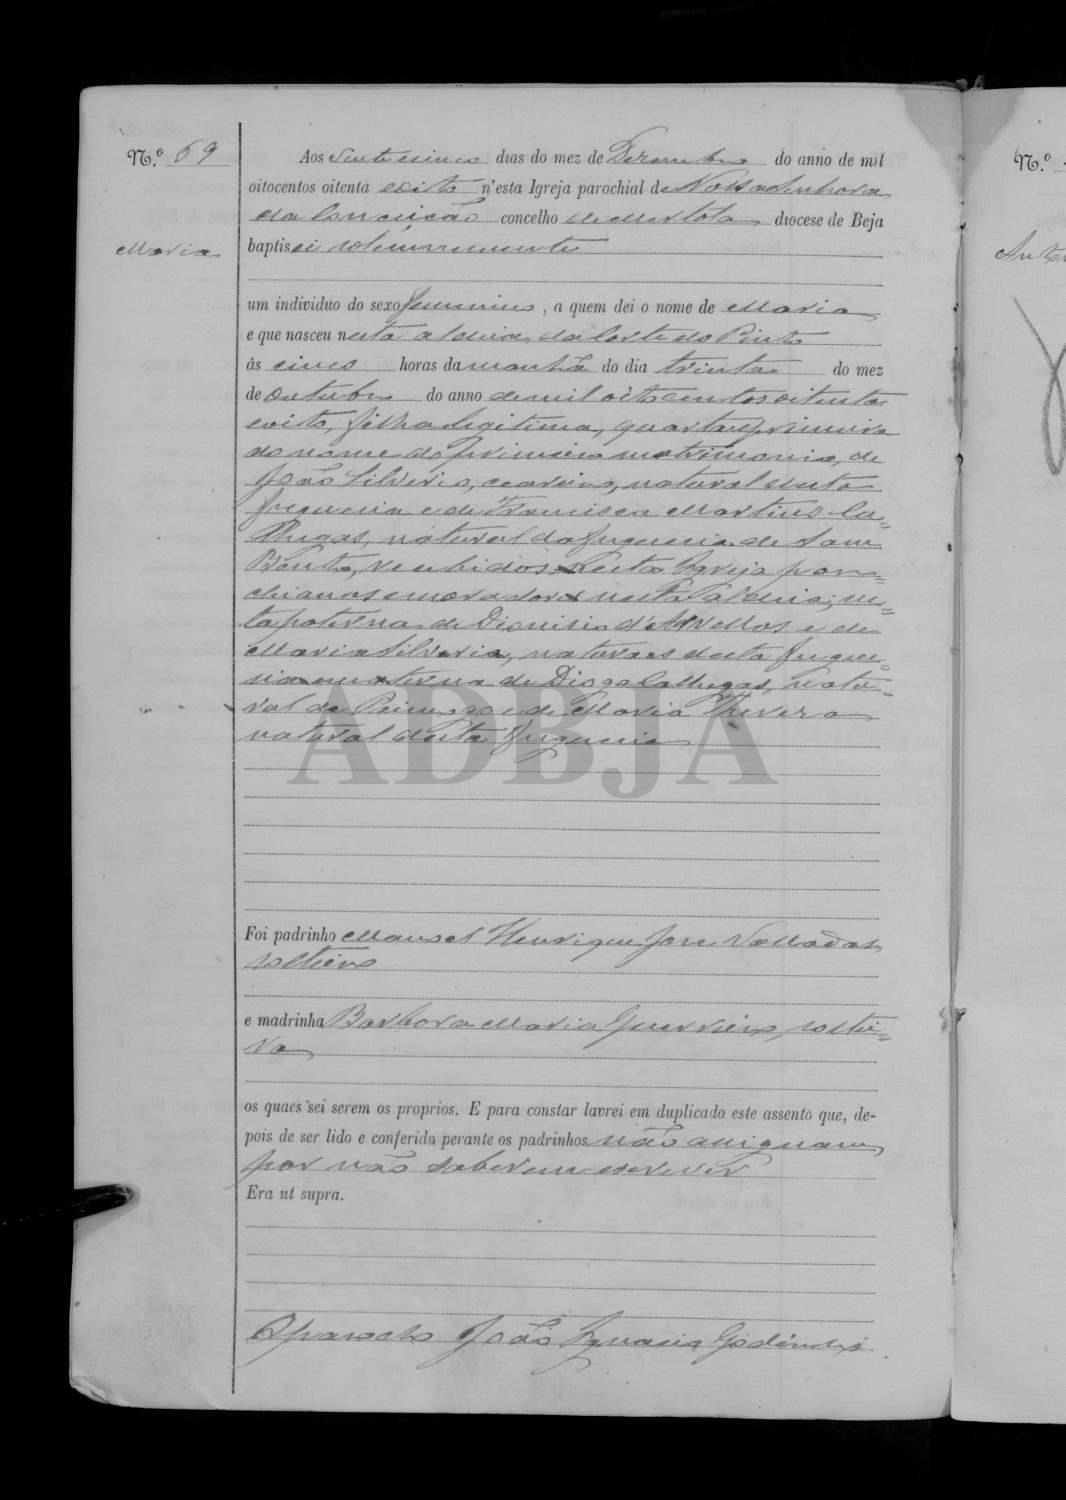 N.º 69
Aos vinte e cinco dias do mez de Dezembro do anno de mil
oitocentos oitenta e oito n'esta Igreja parochial de Nossa Senhora
da Conceição concelho de Mertola diocese de Beja
Maria
baptisei solemnemente
um individuo do sexo femenino, a quem dei o nome de Maria
e que nasceu nesta aldeia da Corte do Pinto
ás cinco horas da manhã do dia trinta do mez
de Outubro do anno de mil oito centos oitenta
e oito, filha legitima, quarta e primeira
do nome do primeiro matrimonio, de
João Silverio, natural desta
freguezia e de Francisca Martins Ca=
lhegas, natural da freguezia de Sam
Bento, recebidos nesta Igreja paro=
chianos e moradores nesta aldeia; ne=
ta paterna de Dionisio d'Arvellos e de
Maria Silveria, naturaes desta fregue=
zia e materna de Diogo Calhegas, natu=
ral de e de Maria Thereza
natural desta freguezia
ADBJA
Foi padrinho Manoel Henrique José Valladas,
solteiro
e madrinha Barbora Maria Guerreiro, soltei=
ra
os quaes sei serem os proprios. E para constar lavrei em duplicado este assento que, de-
pois de ser lido e conferido perante os padrinhos não assignam
por não saberem escrever
Era ut supra.
O parocho João Ignacio Godinho
N.º
Anto